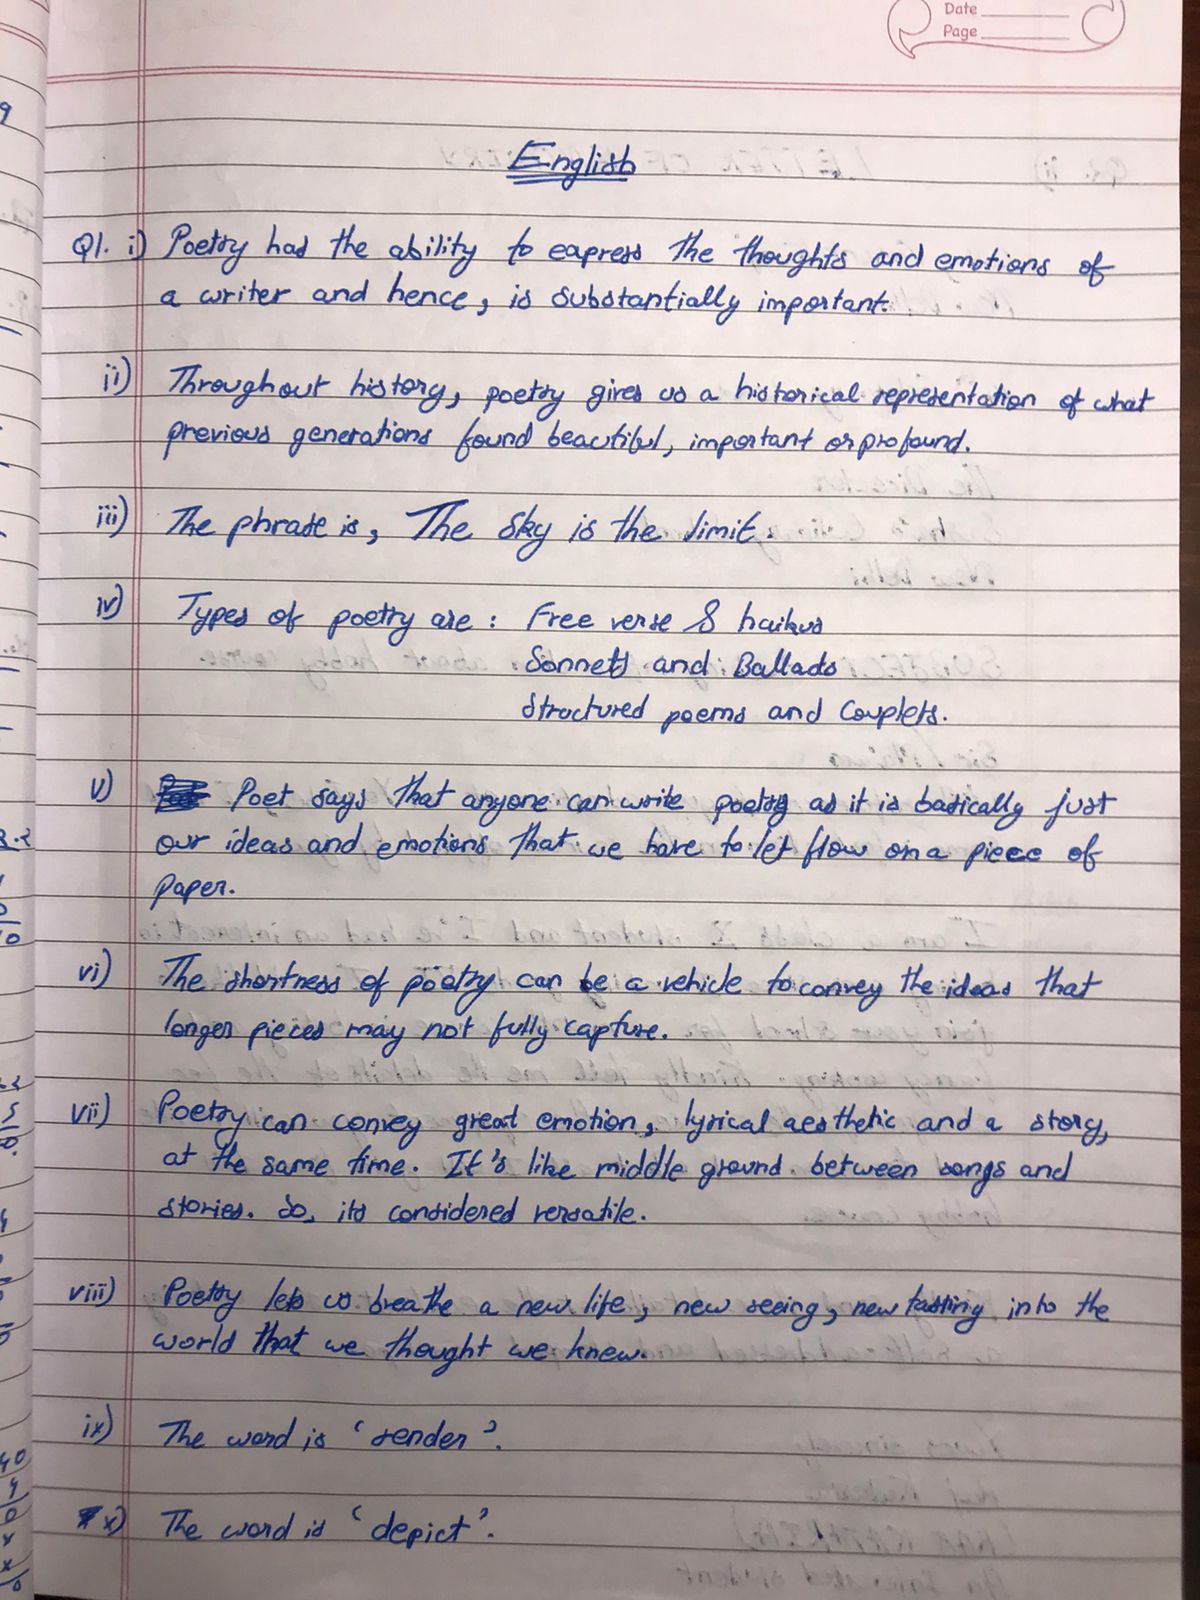 Date
Page
English
Q1. i) Poetry has the ability to express the thoughts and emotions of
a writer and hence, is substantially important.
ii) Throughout history, poetry gives us a historical representation of what
previous generations found beautiful, important or profound.
iii) The phrase is, The Sky is the limit.
iv) Types of poetry are : Free verse & haikus
Sonnets and Ballads
Structured poems and Couplets.
v) Poet says that anyone can write poetry as it is basically just
our ideas and emotions that we have to let flow on a piece of
paper.
vi) The shortness of poetry can be a vehicle to convey the ideas that
longer pieces may not fully capture.
vii) Poetry can convey great emotion, lyrical aesthetic and a story,
at the same time. It's like middle ground between songs and
stories. So, its considered versatile.
viii) Poetry lets us breathe a new life, new seeing, new tasting into the
world that we thought we knew.
ix) The word is 'render'.
x) The word is 'depict'.